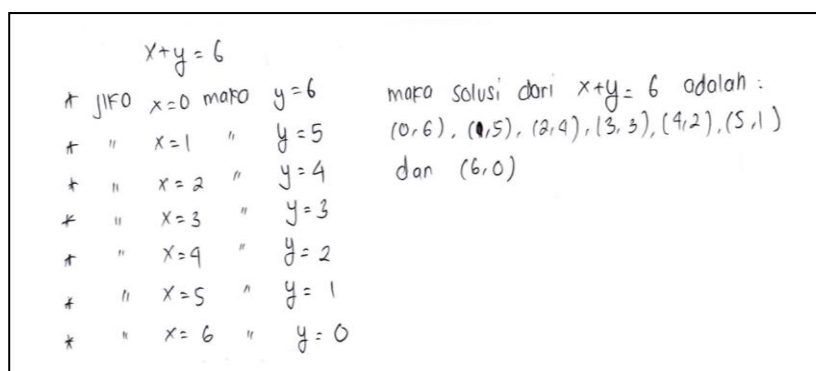 x+y = 6
* Jika x=0 maka y=6
* " x=1 " y=5
* " x=2 " y=4
* " x=3 " y=3
* " x=4 " y=2
* " x=5 " y=1
* " x=6 " y=0
maka solusi dari x+y= 6 adalah :
(0,6), (1,5), (2,4), (3,3), (4,2), (5,1)
dan (6,0)